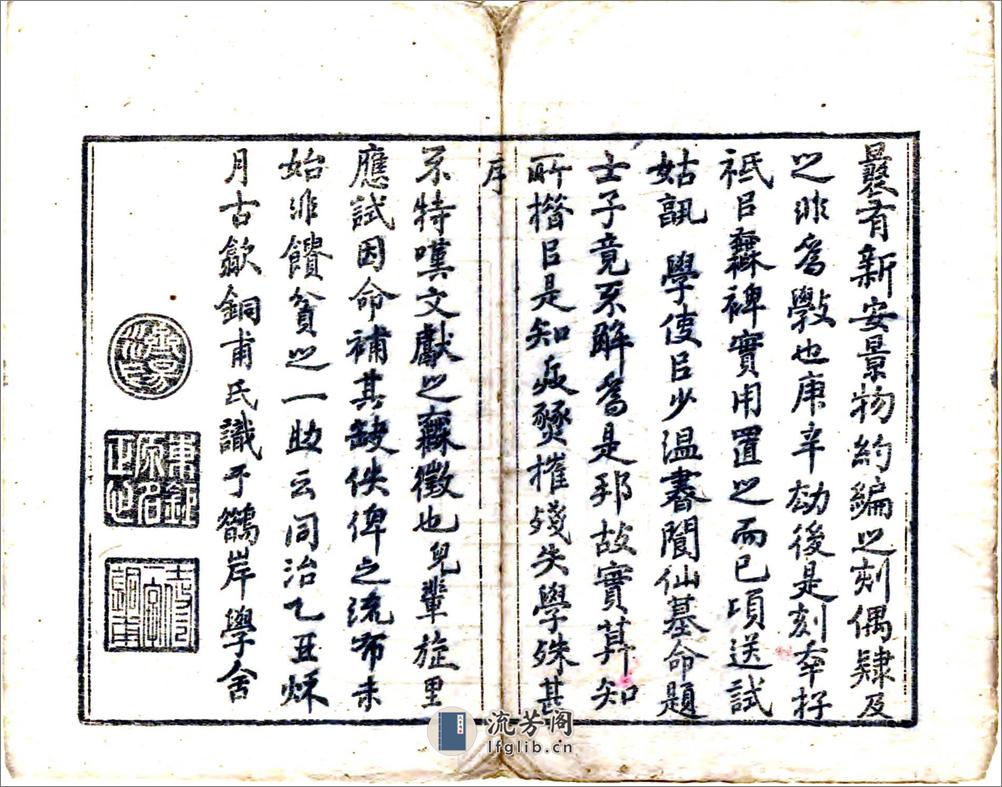 曩有新安景物約編之刻偶隸及
之非為敩也庚辛劫後是刻幸存
祗㠯無裨實用置之而已頃送試
姑訊學使㠯少溫書閬仙基命題
士子竟不解為是邦故實莫知
所楷㠯是知兵燹摧殘失學殊甚
序
不特嘆文獻之無徵也兒輩旋里
應試因命補其缺佚俾之流布未
始非饋貧之一助云同治乙丑秌
月古歙銅甫氏識于鶴岸學舍
流芳阁
lfglib.cn